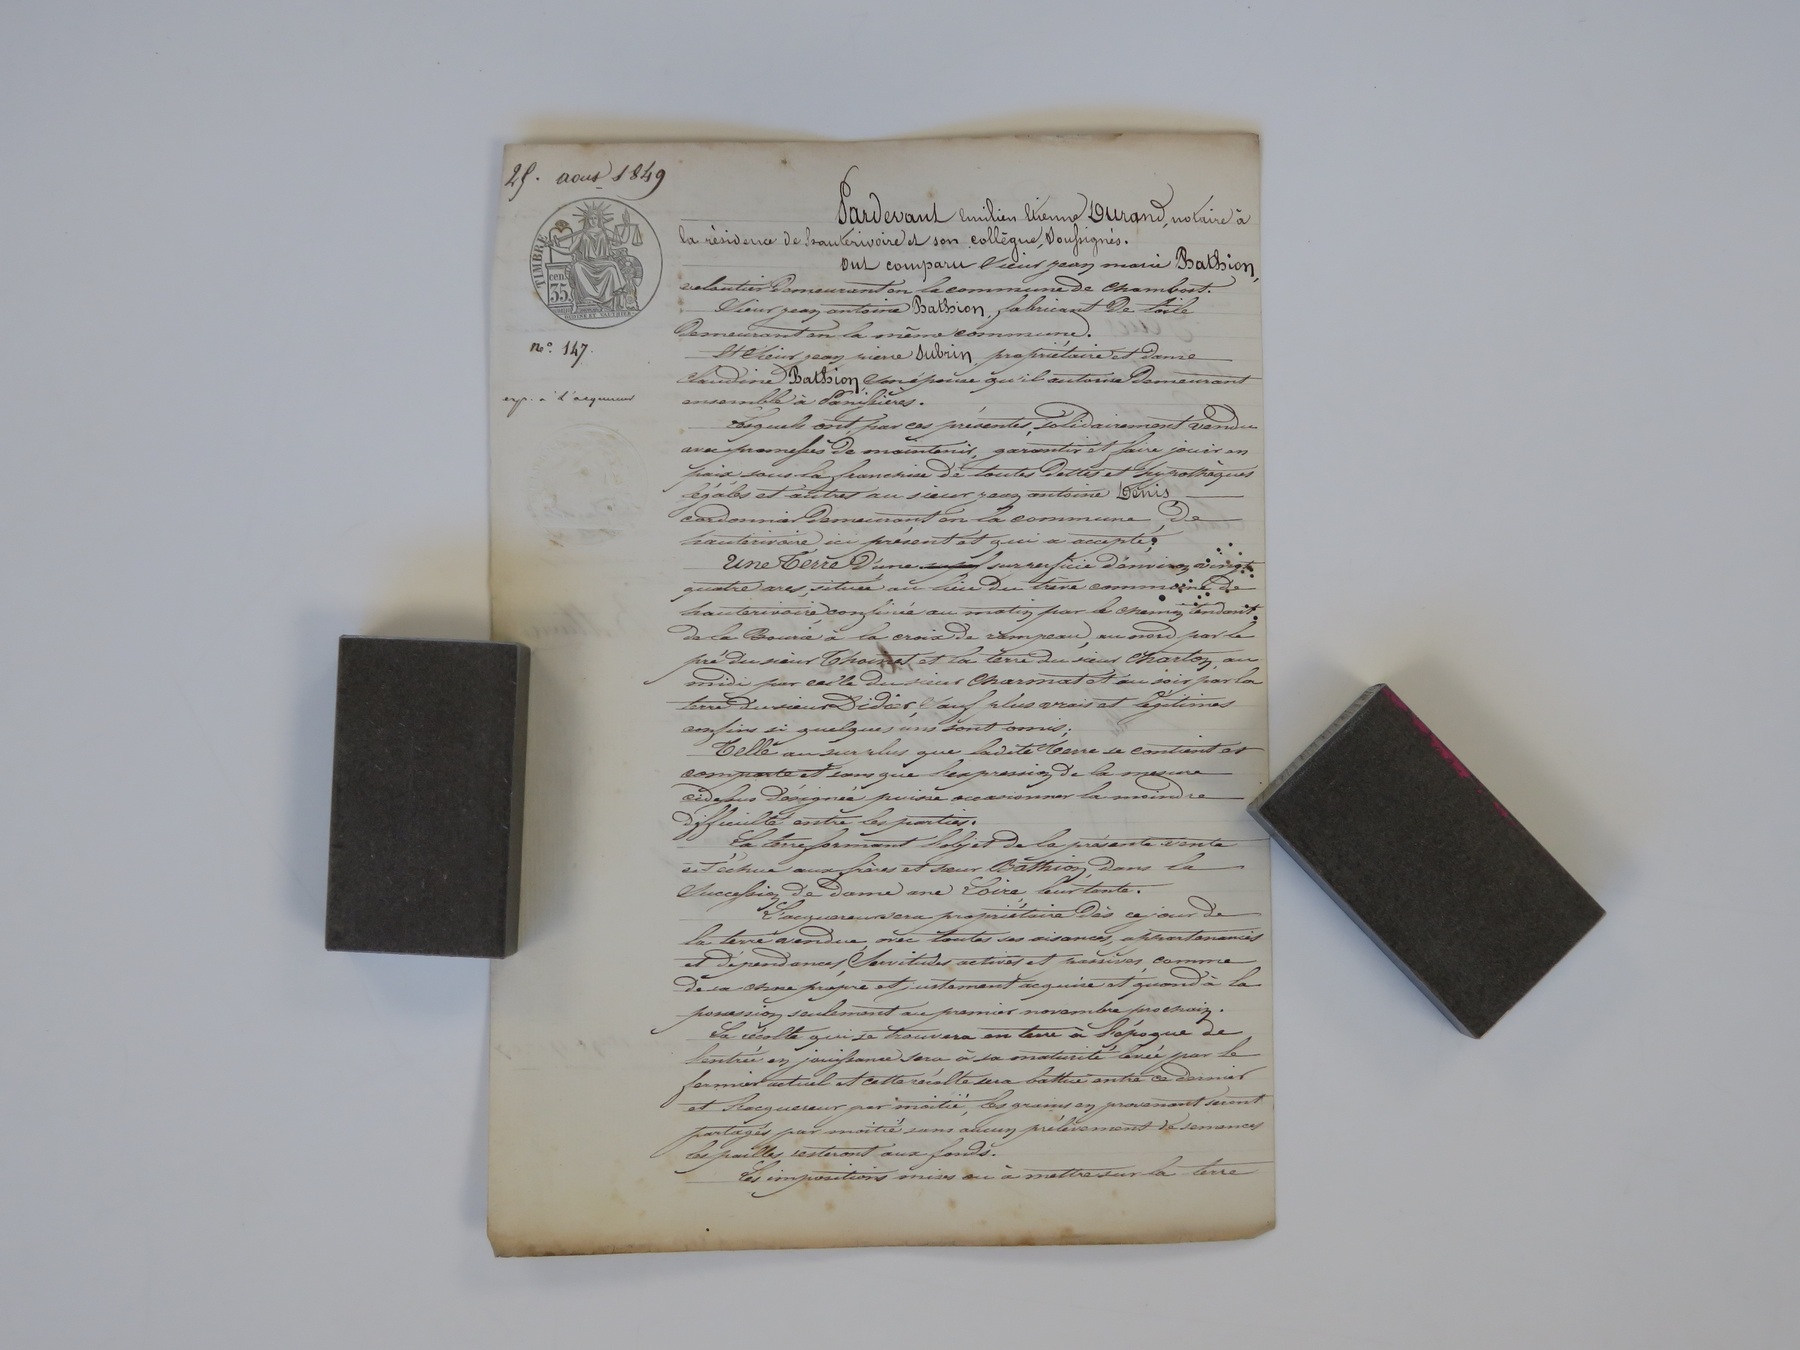 25. aout 1849
TIMBRE
cen
35
n° 147.
exp. à l'acquereur
Pardevant Emilien Etienne Durand, notaire à
la résidence de hauterivoire et son collègue, soussignés.
Ont comparu Sieur jean marie Bathion,
veloutier demeurant en la commune de chambost.
Sieur jean antoine Bathion, fabricant de toile
demeurant en la même commune.
Et Sieur jean pierre Subrin, propriétaire et dame
claudine Bathion son épouse qu'il autorise demeurant
ensemble à Panissières.
Lesquels ont, par ces présentes, solidairement vendu
avec promesses de maintenir, garantir et faire jouir en
paix sous la franchise de toutes dettes et hypothèques
légales et autres au sieur jean antoine Denis
cordonnier demeurant en la commune de
hauterivoire ici présent et qui a accepté,
Une Terre d'une surperficie d'environ vingt
quatre ares, située au lieu du trève commune de
hauterivoire confinée au matin par le chemin tendant
de la Bourie à la croix de rampeau, au nord par le
pré du sieur Thoinet et la terre du sieur Charlon, au
midi par celle du sieur Charmat et au soir par la
terre du sieur Didier, Sauf plus vrais et légitimes
confins si quelques uns sont omis;
Telle au surplus que ladite Terre se contient et
comporte et sans que l'expression de la mesure
cidessus désignée puisse occasionner la moindre
difficulté entre les parties.
La terre formant l'objet de la présente vente
est échue aux frères et sœur Bathion, dans la
Succession de Dame ane Loire leur tante.
L'acquereur sera propriétaire dès ce jour de
la terre vendue avec toutes ses aisances, appartenances
et dépendances, Servitudes actives et passives comme
de sa chose propre et justement acquise et quand à la
possession seulement au premier novembre prochain.
La récolte qui se trouvera en terre à l'époque de
l'entrée en jouissance sera à sa maturité levée par le
fermier actuel et cette récolte sera battue entre ce dernier
et l'acquereur par moitié, les grains en provenant seront
partagés par moitié sans aucun prélèvement de semences
les pailles resteront aux fonds.
Les impositions mises ou à mettre sur la terre